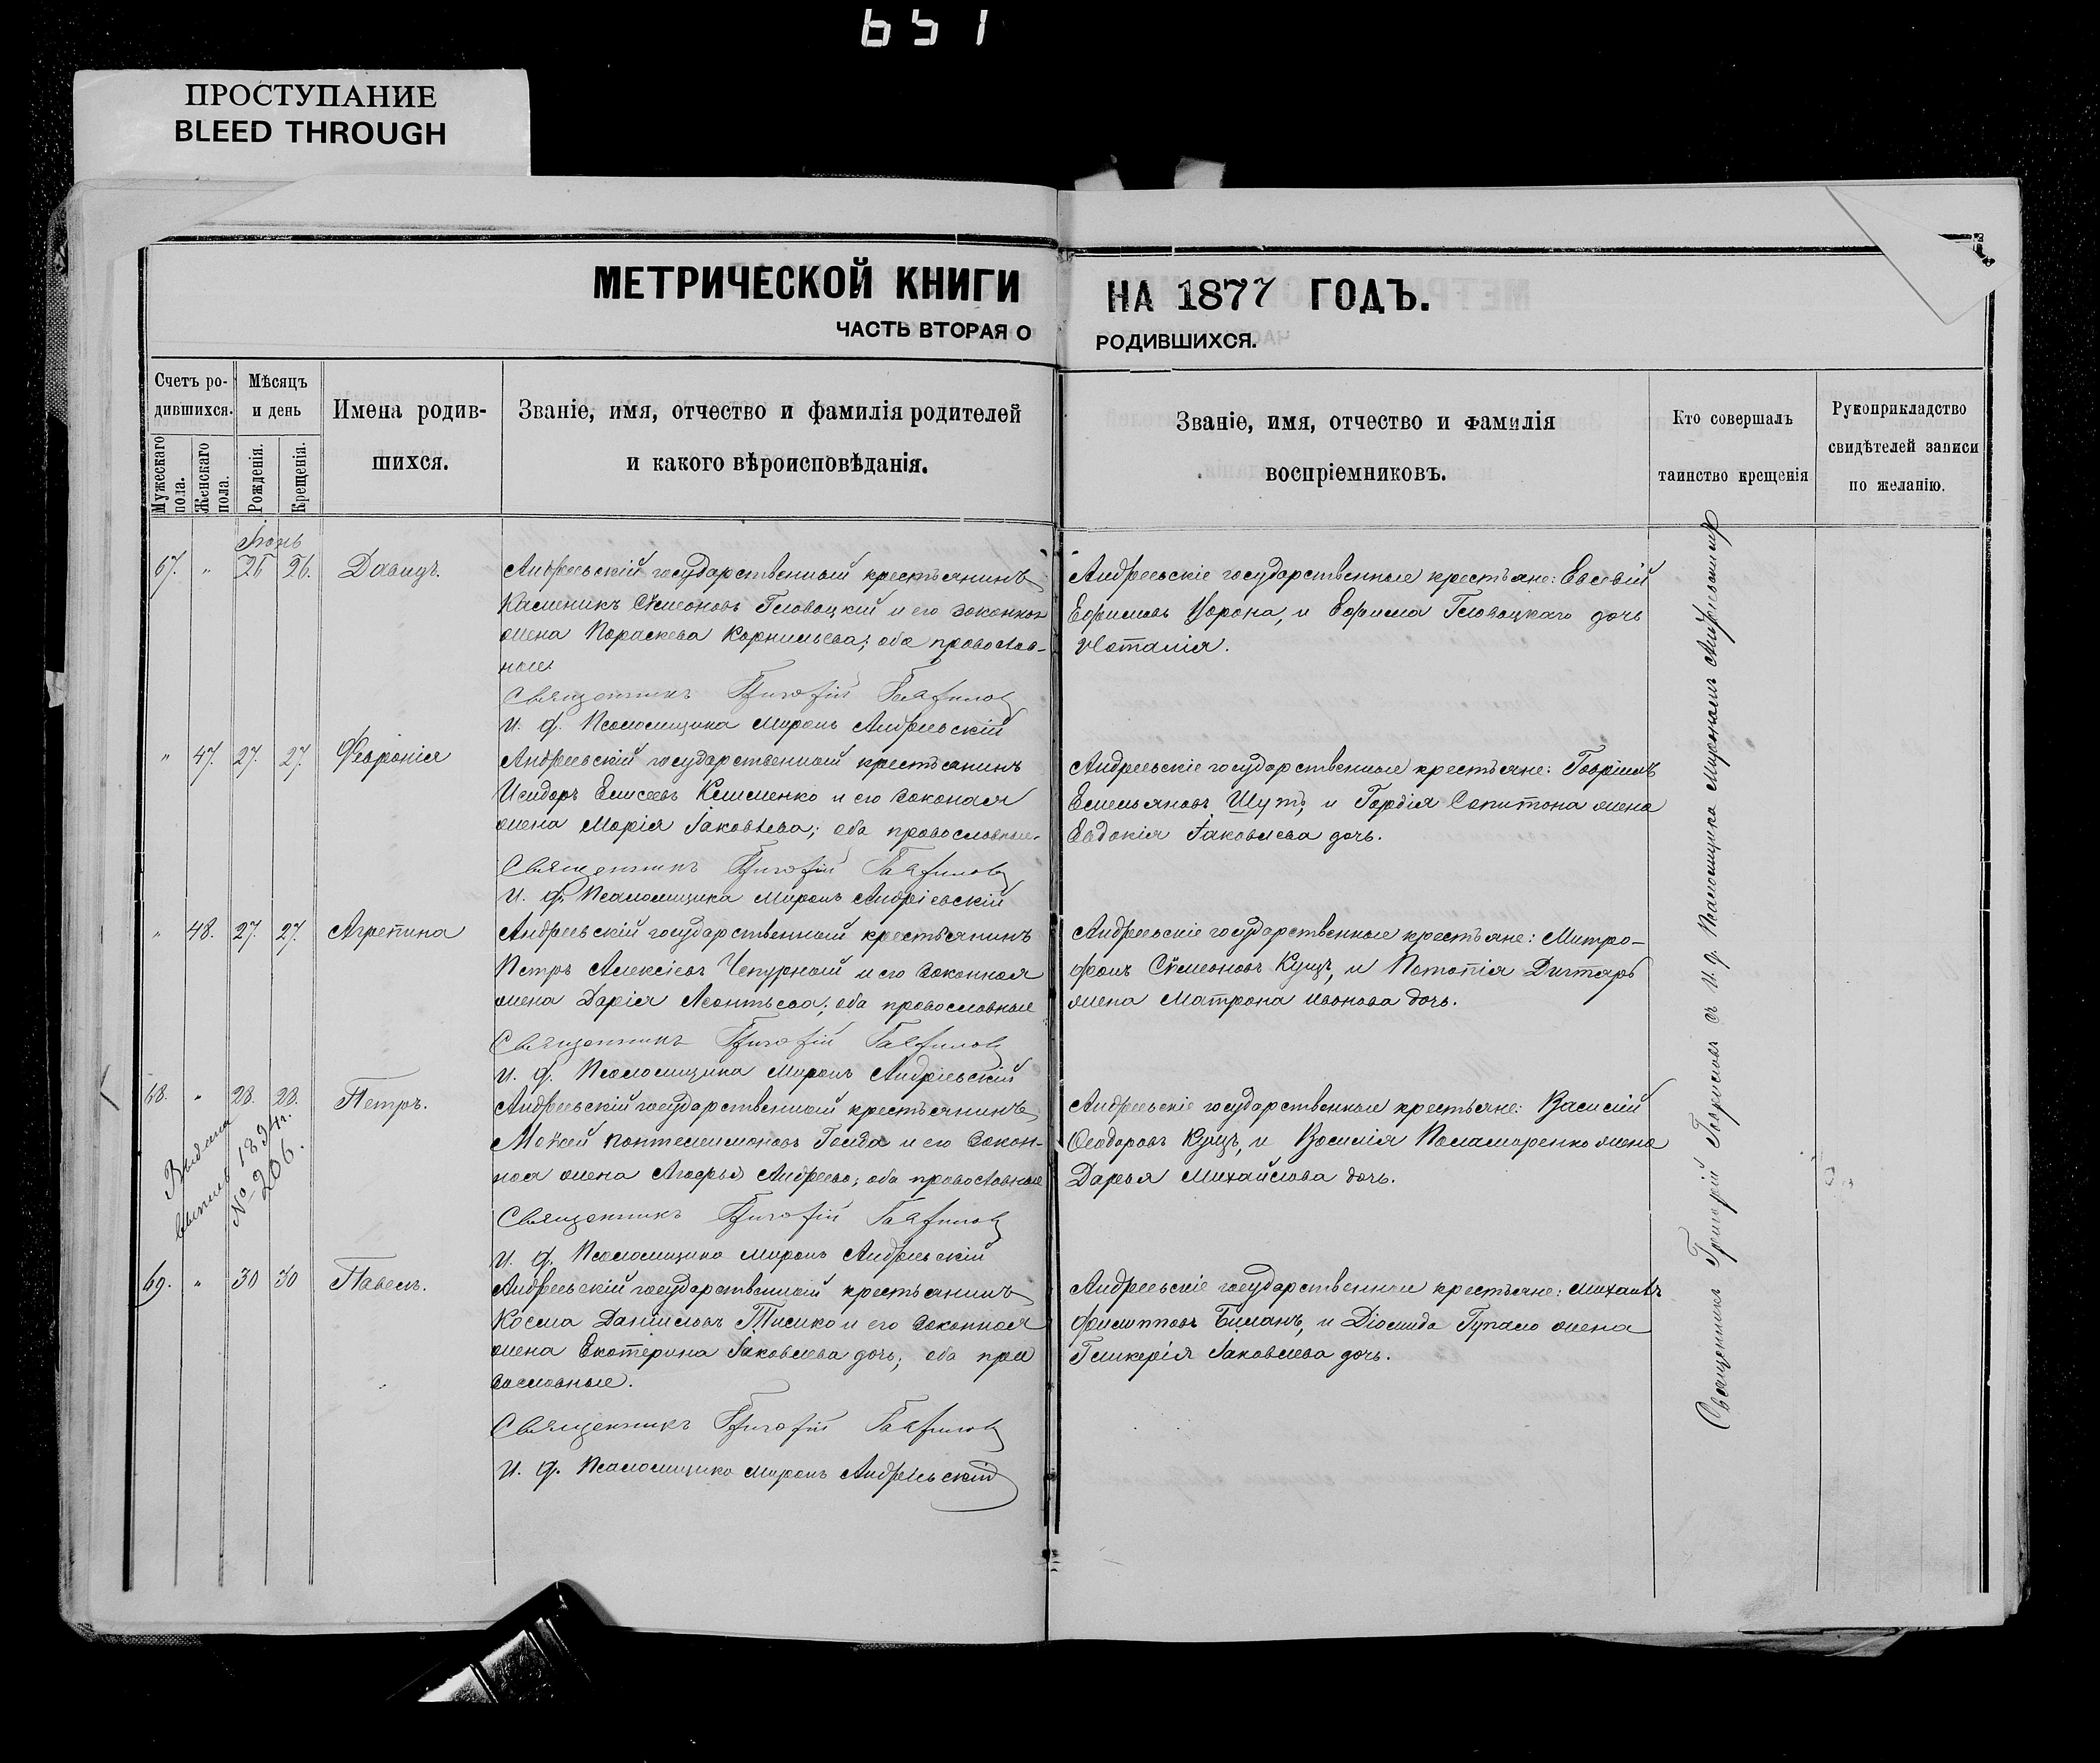 651
ПРОСТУПАНИЕ
BLEED THROUGH
МЕТРИЧЕСКОЙ КНИГИ
ЧАСТЬ ВТОРАЯ О
НА 1877 ГОДЪ.
РОДИВШИХСЯ.
Счетъ родившихся.
Мужескаго пола.
Женскаго пола.
Мѣсяцъ и день
Рожденія.
Крещенія.
Имена родившихся.
Званіе, имя, отчество и фамилія родителей
и какого вѣроисповѣданія.
Званіе, имя, отчество и фамилія
воспріемниковъ.
Кто совершалъ
таинство крещенія
Рукоприкладство
свидѣтелей записи
по желанію.
Іюнь
67. " 26 26. Давидъ.
Андреевскій государственный крестьянинъ
Семеоновъ Головацкій и его законная
жена Параскева Корнильева; оба православ-
ные.
Священникъ Григорій Гавриловъ
И. д. Псаломщика Миронъ Андріевскій
Андреевскіе государственные крестьяне: Евсевій
Ефимовъ Ворона, и Ефима Головацкаго дочь
Наталія.
" 47. 27. 27. Февронія
Андреевскій государственный крестьянинъ
Исидоръ Елисеевъ Клименко и его законная
жена Марія Іаковлева; оба православные.
Священникъ Григорій Гавриловъ
И. д. Псаломщика Миронъ Андріевскій
Андреевскіе государственные крестьяне: Гавріилъ
Емельяновъ Шутъ, и Гордія жена
Евдокія Іаковлева дочь.
" 48. 27. 27. Агрепина
Андреевскій государственный крестьянинъ
Петръ Алексіевъ Чепурный и его законная
жена Дарія Леонтьева; оба православные
Священникъ Григорій Гавриловъ
И. д. Псаломщика Миронъ Андріевскій
Андреевскіе государственные крестьяне: Митро-
фанъ Сѵмеоновъ Куцъ, и Потапія Дигтярь
жена Матрона Иванова дочь.
68. " 28. 28. Петръ.
Выдана
1894 г.
№ 206.
Андреевскій государственный крестьянинъ
Мокей Пантелеимоновъ и его закон-
ная жена Агафья Андреева; оба православные
Священникъ Григорій Гавриловъ
И. д. Псаломщика Миронъ Андріевскій
Андреевскіе государственные крестьяне: Василій
Ѳеодоровъ Куцъ, и Василія Паламаренко жена
Дарья Михайлова дочь.
69. " 30 30 Павелъ.
Андреевскій государственный крестьянинъ
Косма Даніиловъ и его законная
жена Екатерина Іаковлева дочь; оба пра
вославные.
Священникъ Григорій Гавриловъ
И. д. Псаломщика Миронъ Андріевскій
Андреевскіе государственные крестьяне: Михаилъ
Филипповъ и Діомида жена
Гликерія Іаковлева дочь.
Священникъ Григорій Гавриловъ съ И. д. Псаломщика Мирономъ Андріевскимъ